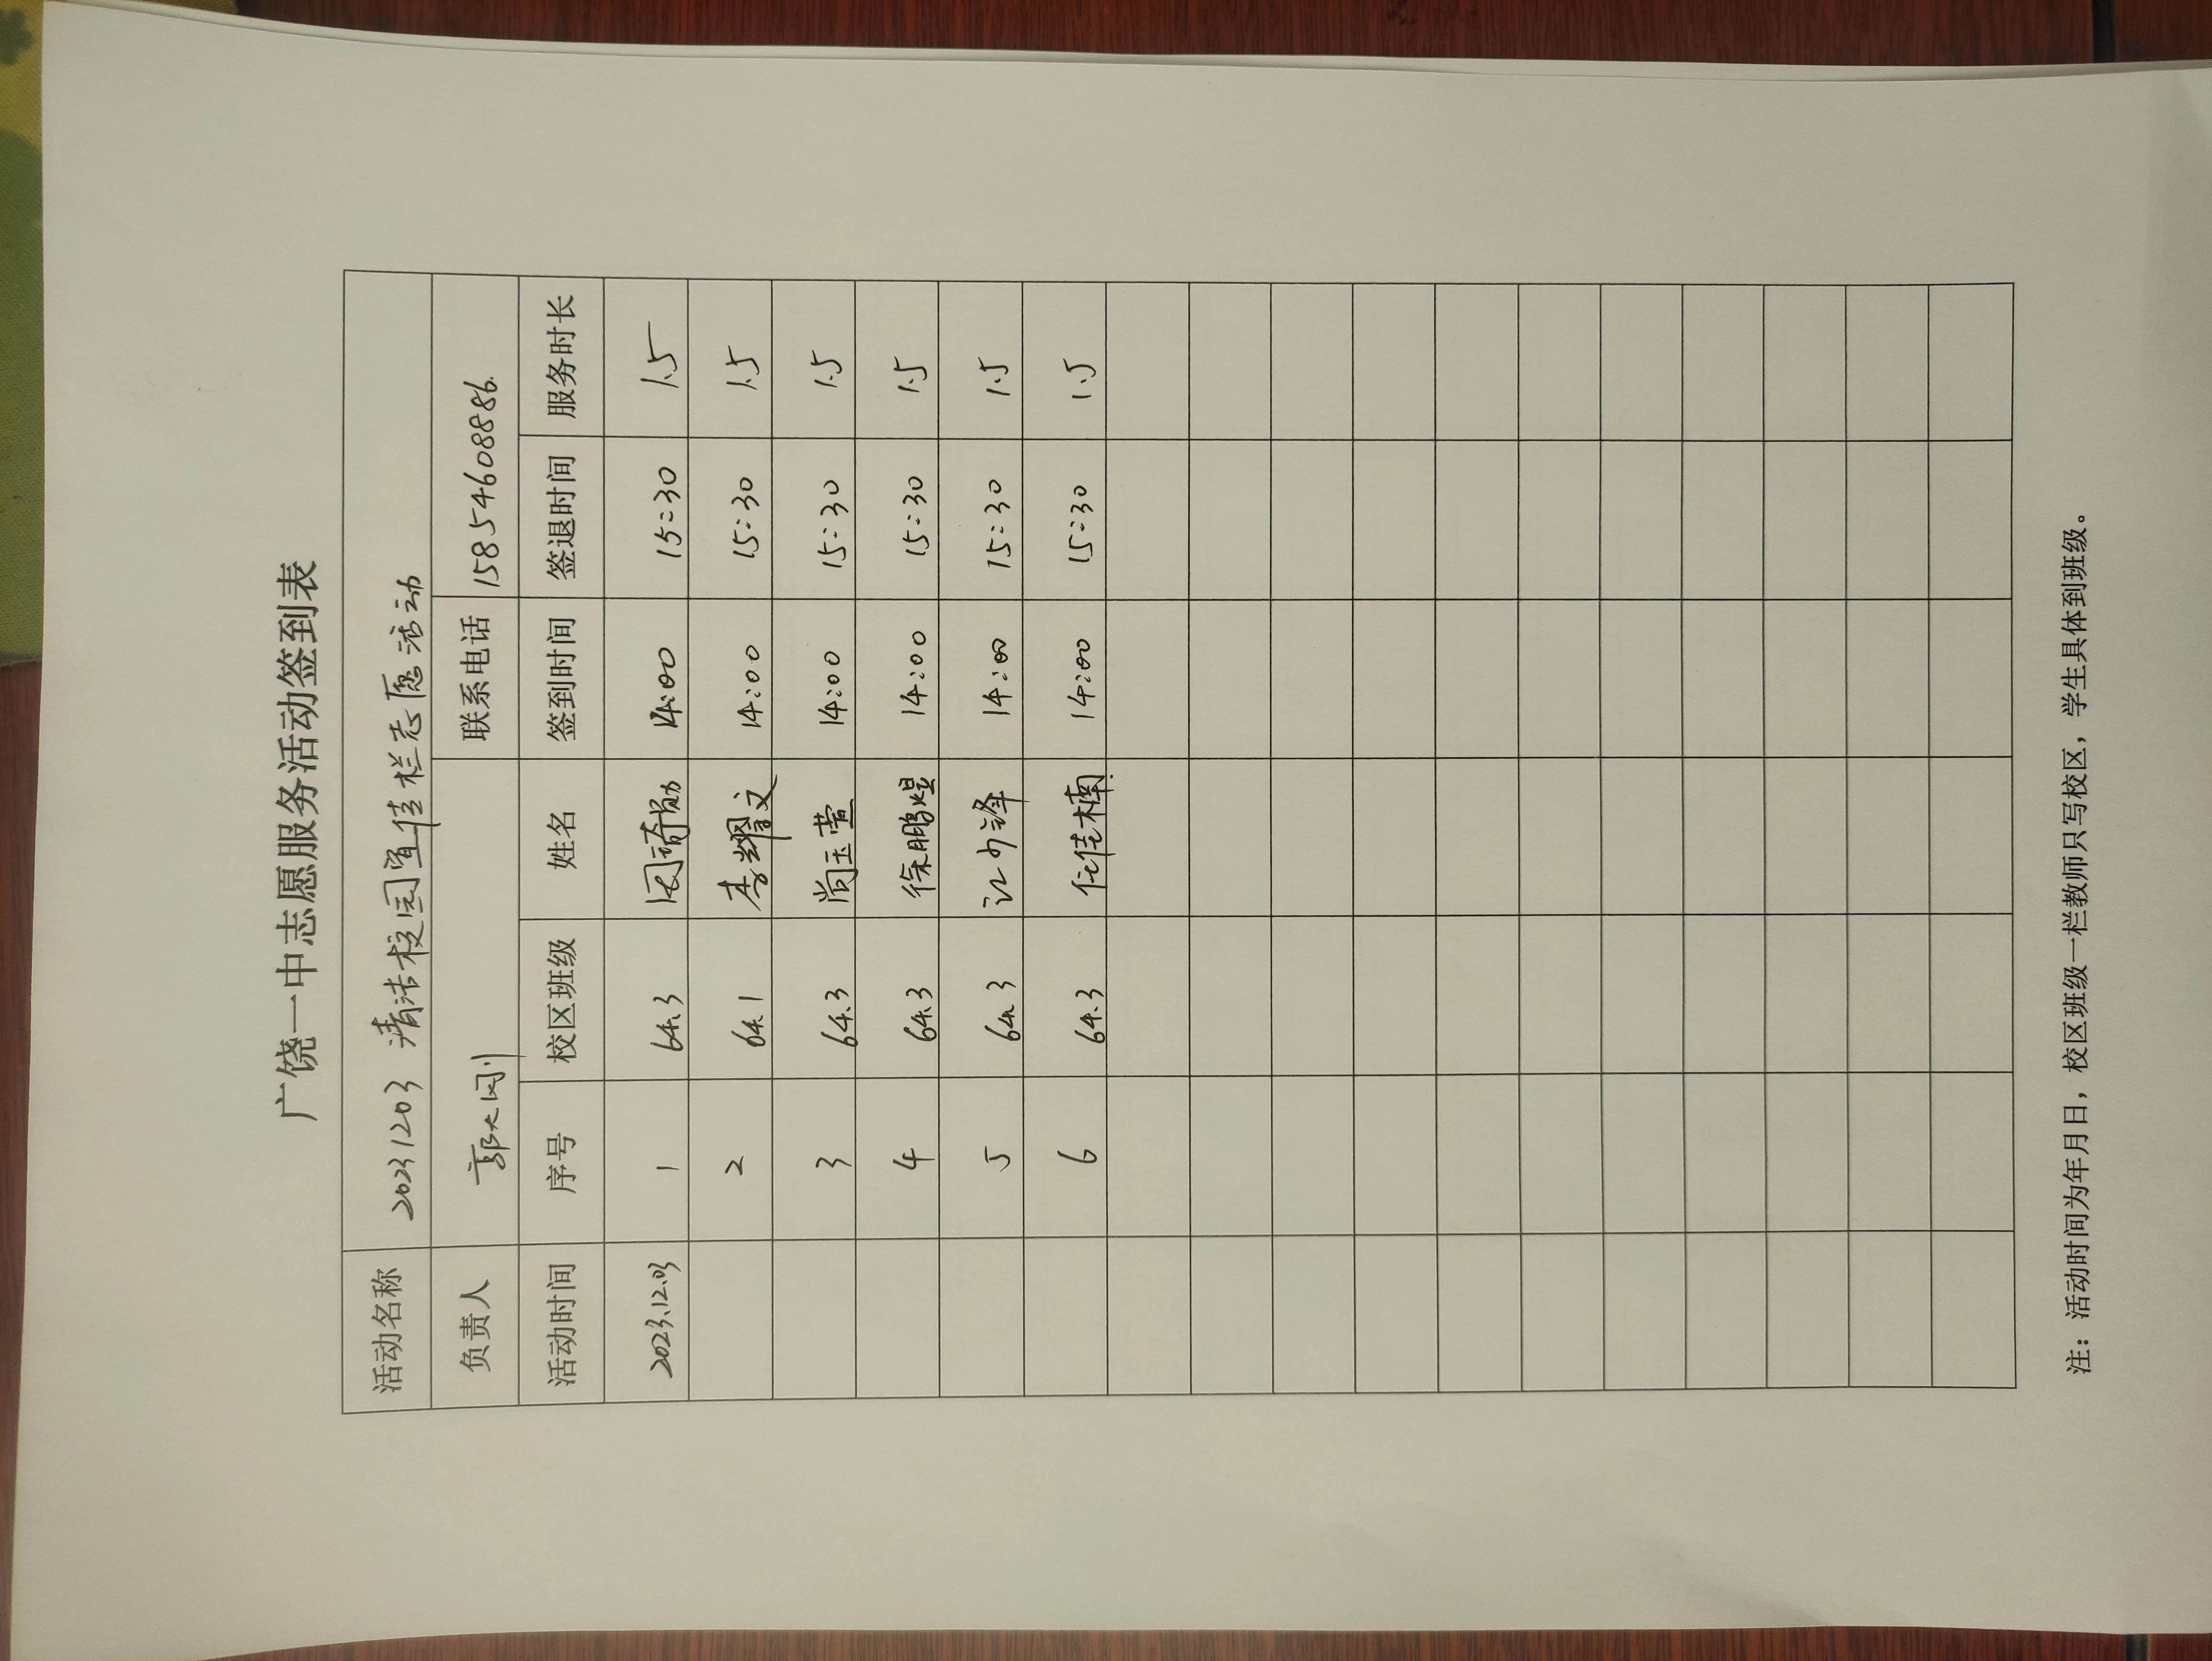 广饶一中志愿服务活动签到表
活动名称 20231203 清洁校园宣传栏志愿活动
负责人 郭大刚 联系电话 15854608886.
活动时间 序号 校区班级 姓名 签到时间 签退时间 服务时长
2023.12.03 1 64.3 周琦勋 14:00 15:30 1.5
2 64.1 李耀文 14:00 15:30 1.5
3 64.3 尚玉萱 14:00 15:30 1.5
4 64.3 徐鹏煜 14:00 15:30 1.5
5 64.3 14:00 15:30 1.5
6 64.3 任佳楠 14:00 15:30 1.5
注：活动时间为年月日，校区班级一栏教师只写校区，学生具体到班级。